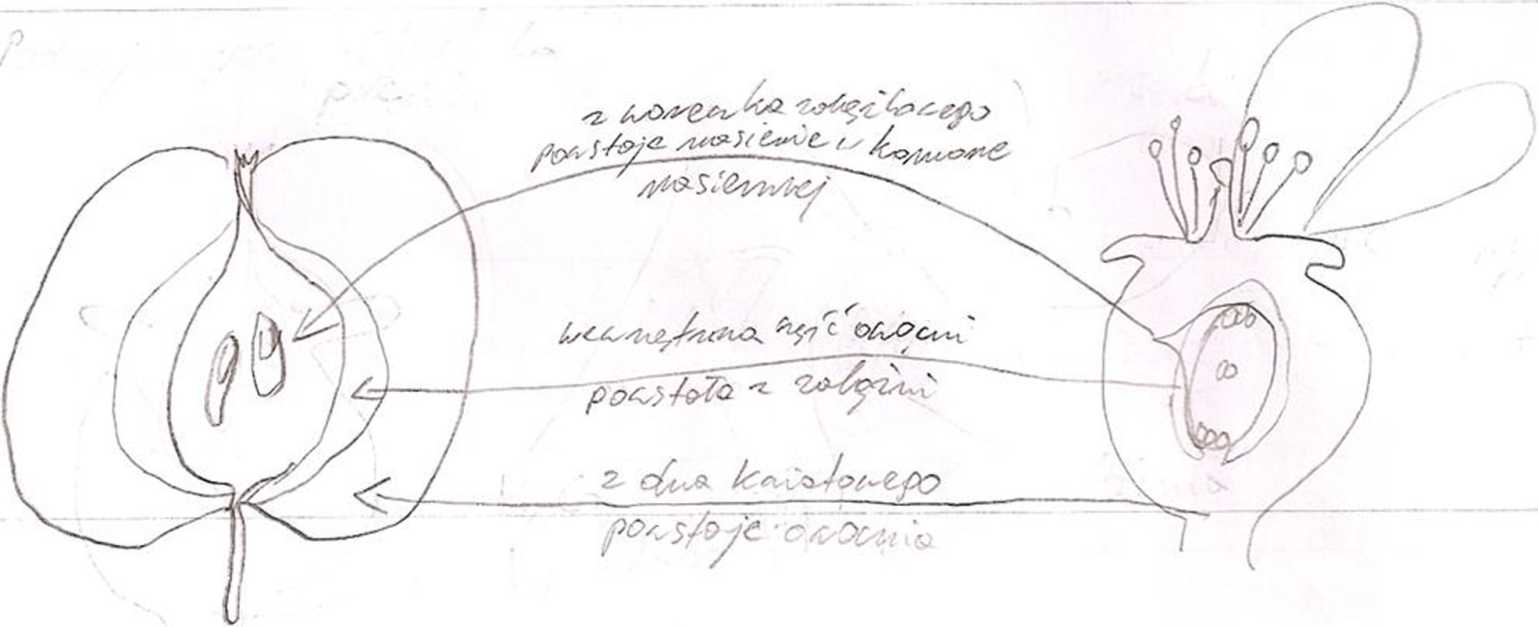 z woreczka zalążkowego
powstaje nasienie w komorze
nasiennej
wewnętrzna część owocni
powstała z zalążni
z dna kwiatowego
powstaje owocnia